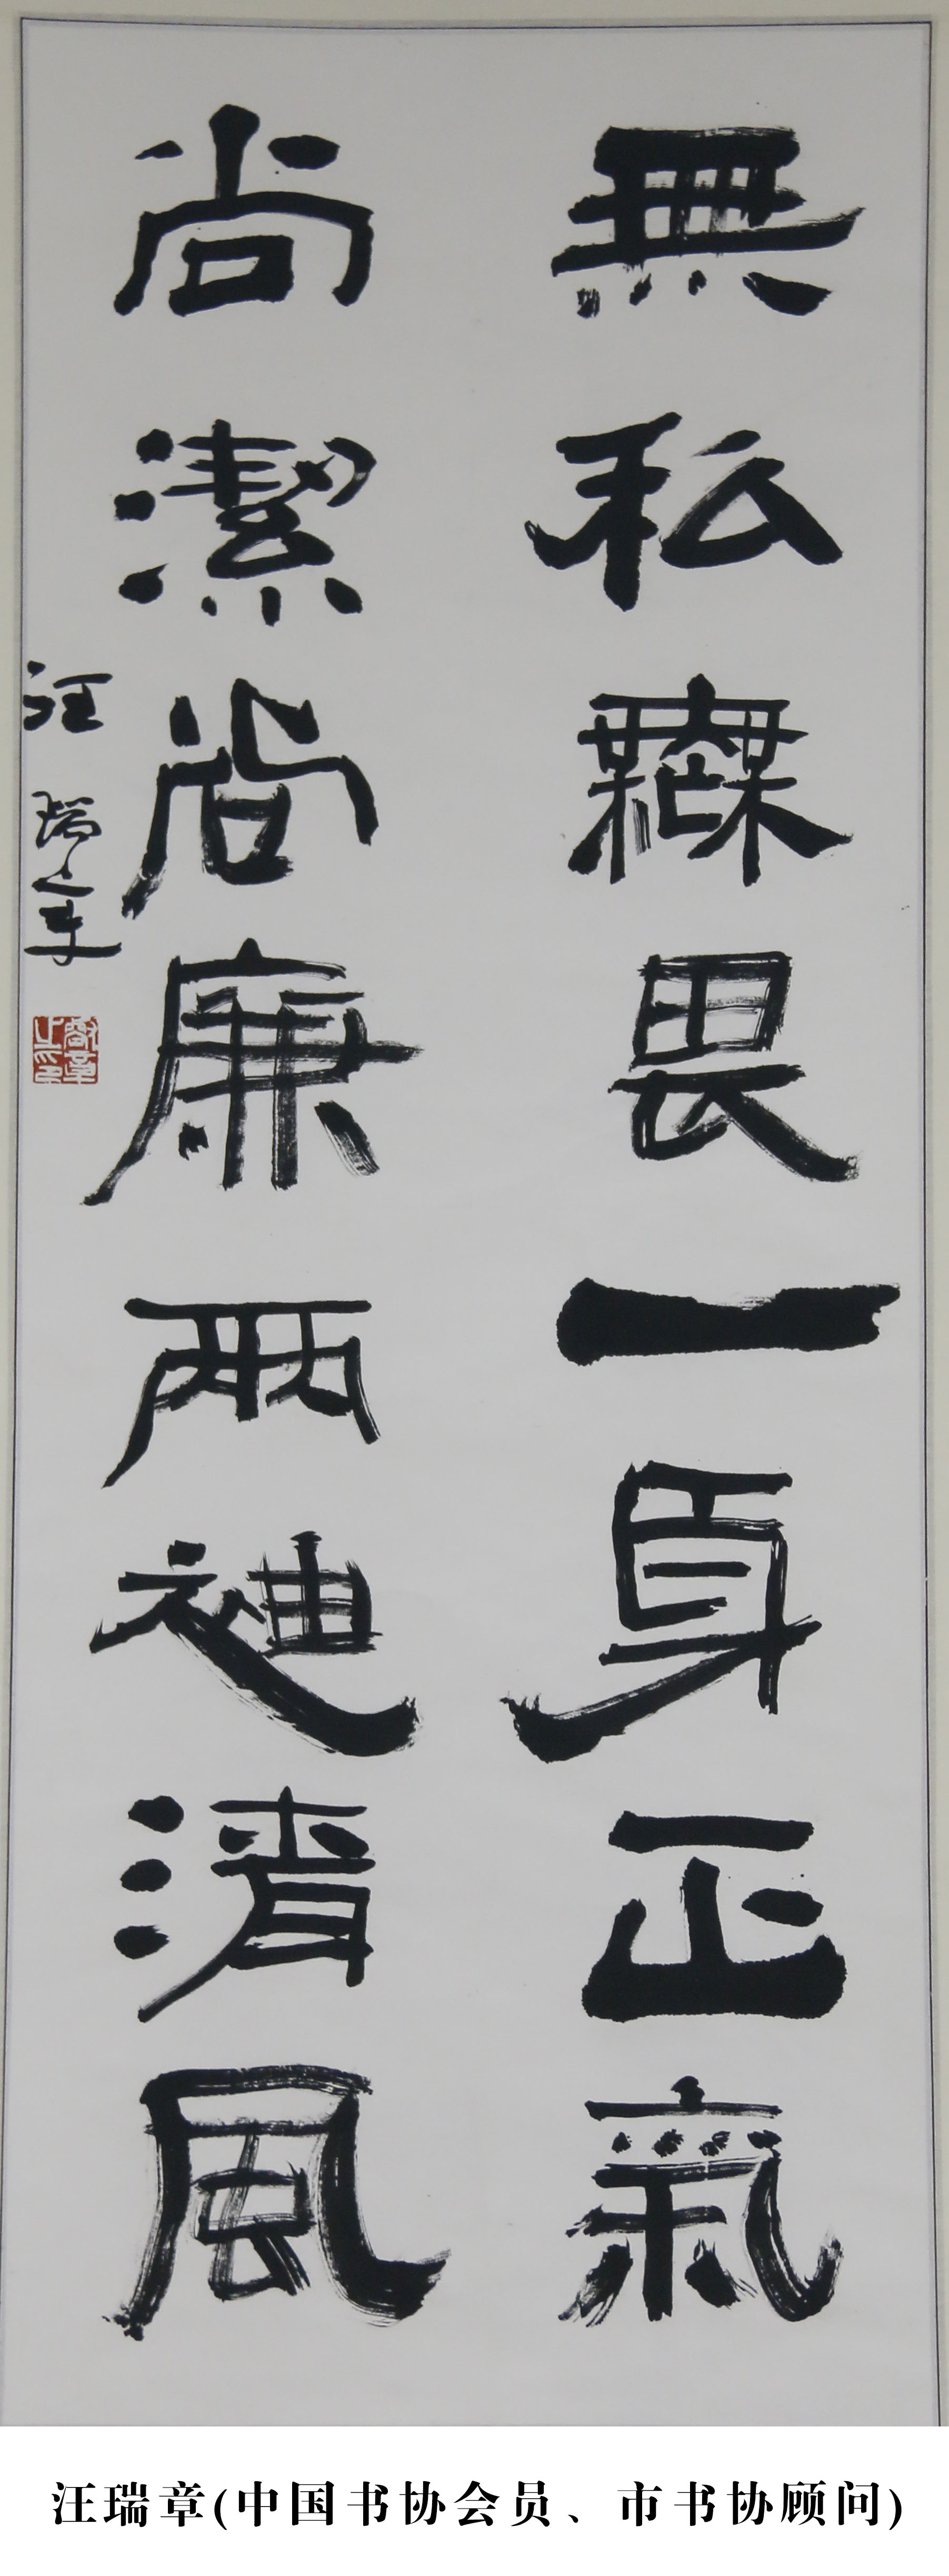 無私無畏一身正氣
尚潔尚廉兩袖清風
汪瑞章
汪瑞章(中国书协会员、市书协顾问)